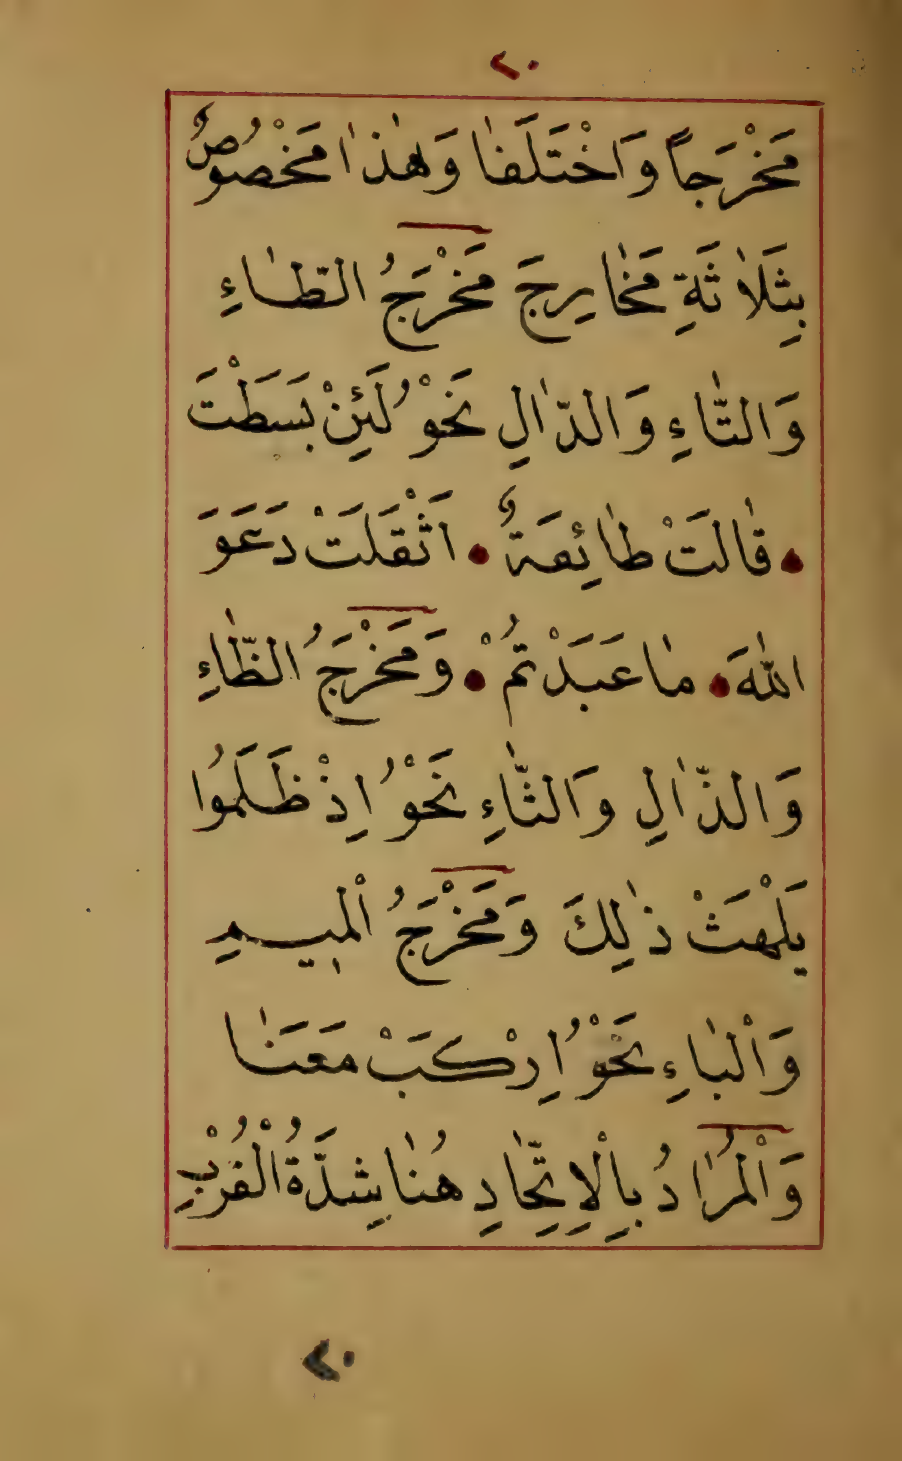 ٢٠
مَخْرَجاً وَاخْتَلَفٰا وَهٰذٰا مَخْصُوصٌ
بِثَلٰاثَةِ مَخٰارِجَ مَخْرَجُ الطّٰاءِ
وَالتّٰاءِ وَالدّٰالِ نَحْوُ لَئِنْ بَسَطْتَ
• قٰالَتْ طٰائِفَةٌ • اَثْقَلَتْ دَعَوَ
اللّٰهَ • مٰا عَبَدْتُمْ • وَمَخْرَجُ الظّٰاءِ
وَالذّٰالِ وَالثّٰاءِ نَحْوُ اِذْ ظَلَمُوا
يَلْهَثْ ذٰلِكَ وَمَخْرَجُ الْمٖيمِ
وَالْبٰاءِ نَحْوُ اِرْكَبْ مَعَنٰا
وَالْمُرٰادُ بِالْاِتِّحٰادِ هُنٰا شِدَّةُ الْقُرْبِ
٢٠